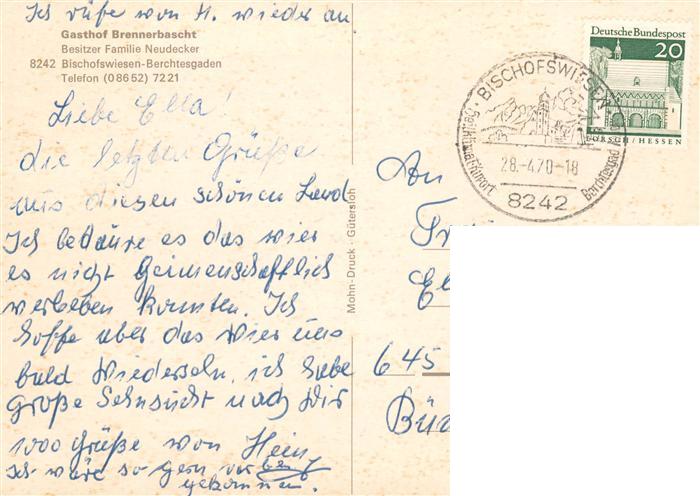 Ich rüfe von H. wieder an
Gasthof Brennerbascht
Besitzer Familie Neudecker
8242 Bischofswiesen-Berchtesgaden
Telefon (08652) 7221
Liebe Ella!
die letzten Grüße
aus diesen schönen Land
Ich bedaure es das wier
es nicht Geimenschaftlich
verleben konnten. Ich
hoffe aber das wier uns
bald Wiedersehn, ich habe
große Sehnsucht nach Dir
1000 Grüße von Hein
Ich wäre so gern vor
gekommen.
Mohn-Druck · Gütersloh
Deutsche Bundespost
20
LORSCH/HESSEN
BISCHOFSWIESEN
Heilklimat. Kurort
Berchtesgad.
28.-4.70-18
8242
An
Fr
El
645
Bü